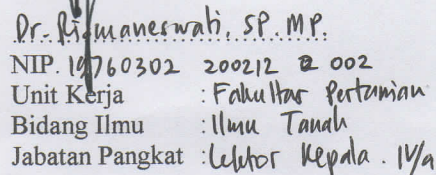 Dr. Rismaneswati, SP. MP.
NIP. 19760302 200212 2 002
Unit Kerja : Fakultas Pertanian
Bidang Ilmu : Ilmu Tanah
Jabatan Pangkat : Lektor Kepala. IV/a